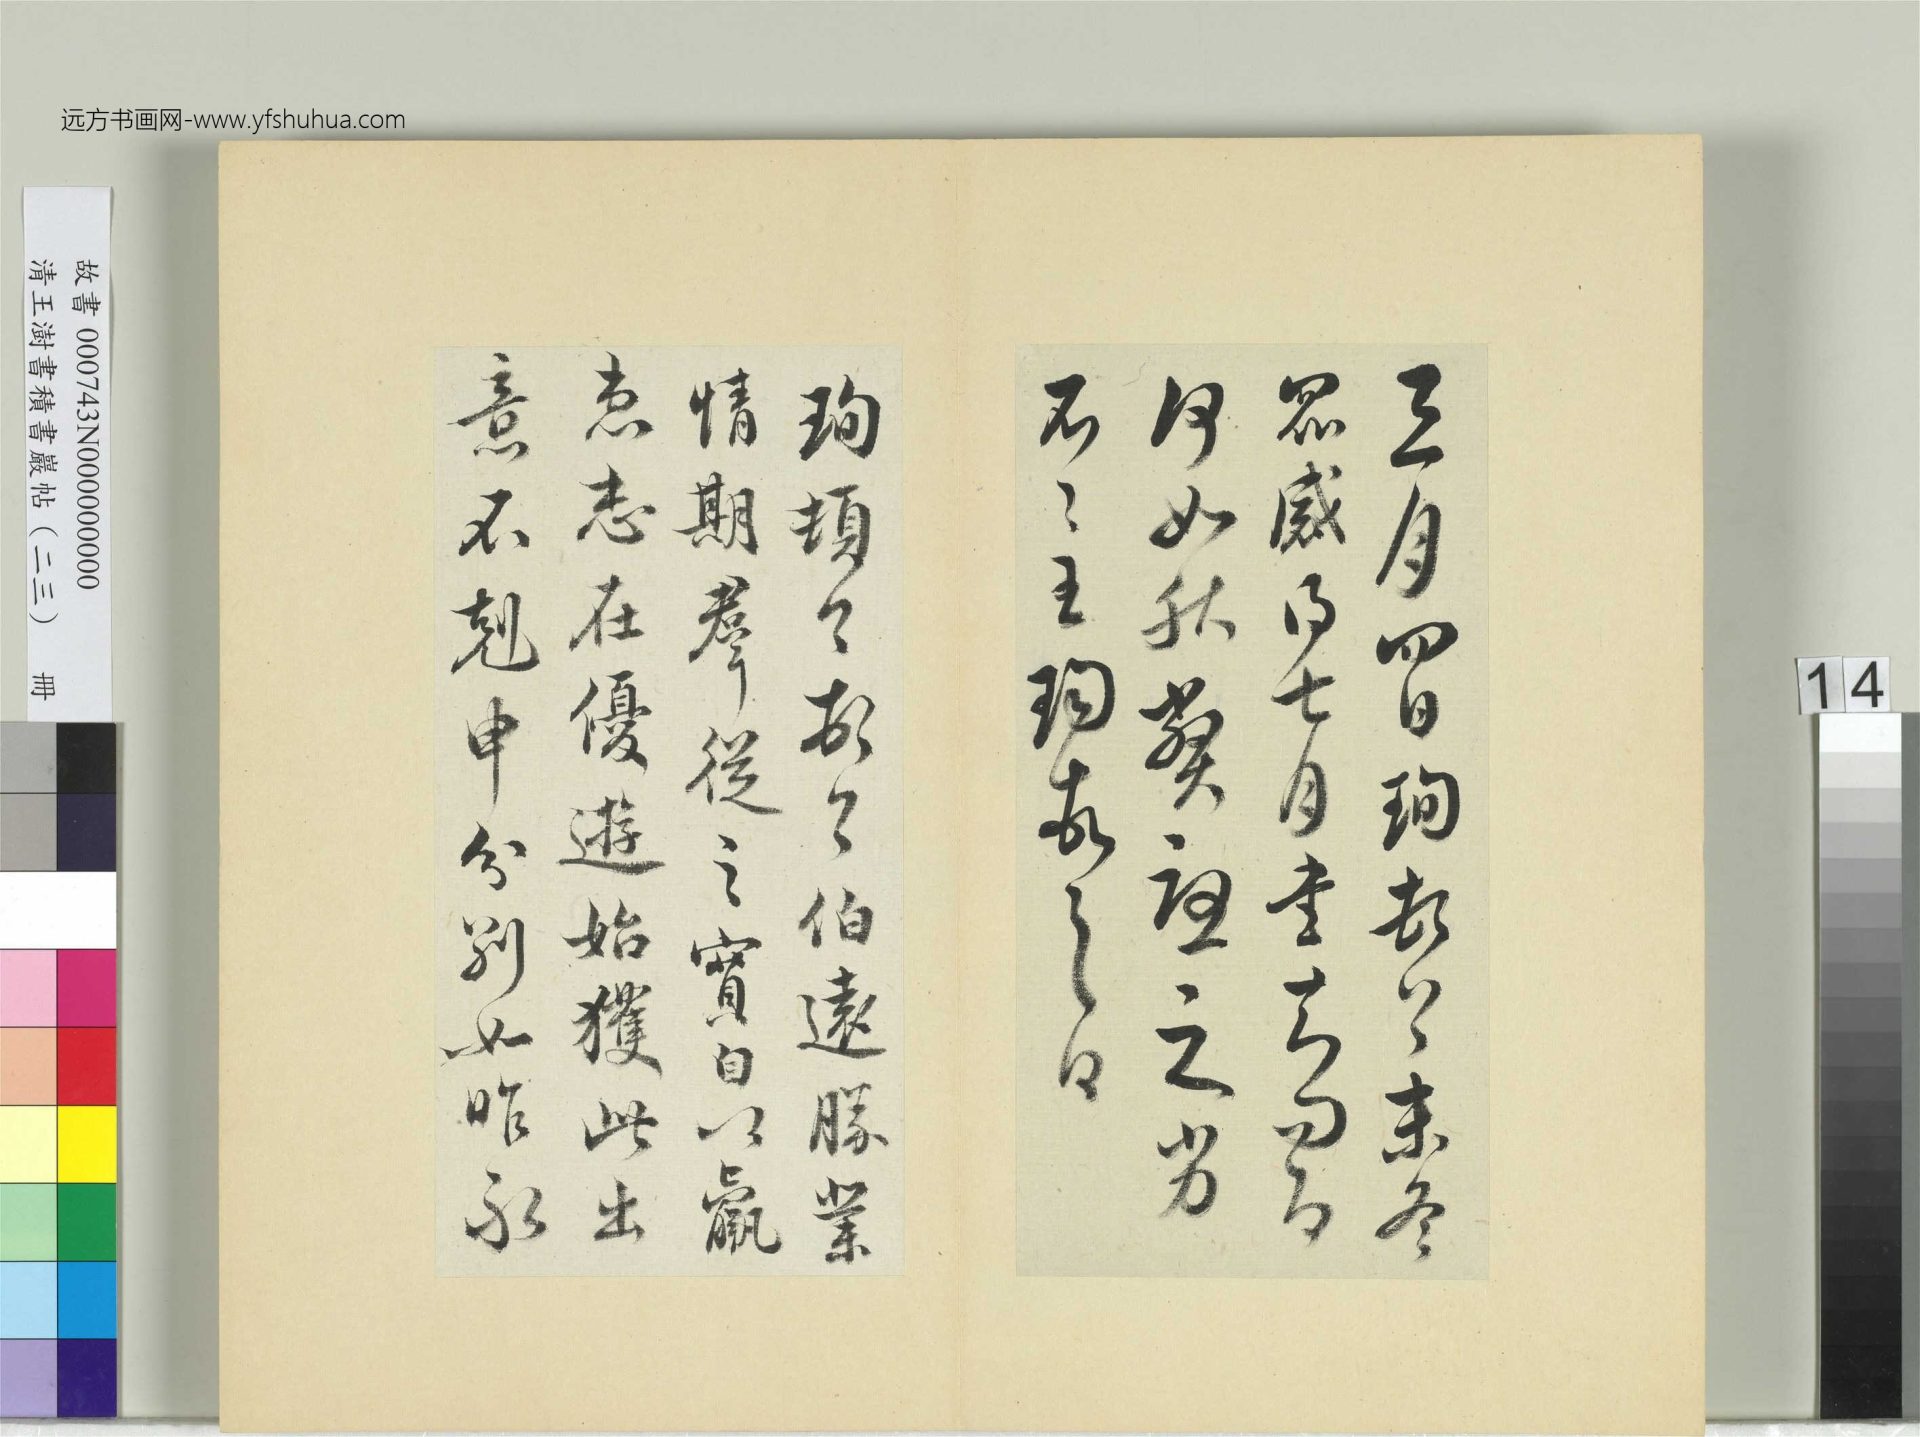 远方书画网-www.yfshuhua.com
故書 000743N000000000
清王澍書積書巖帖（二三） 冊
14
三月四日珣頓首末冬
眾感得七月書問
何如之劣
不々王珣頓首
珣頓首頓首伯遠勝業
情期羣從之寶自以羸
患志在優遊始獲此出
意不剋申分別如昨永